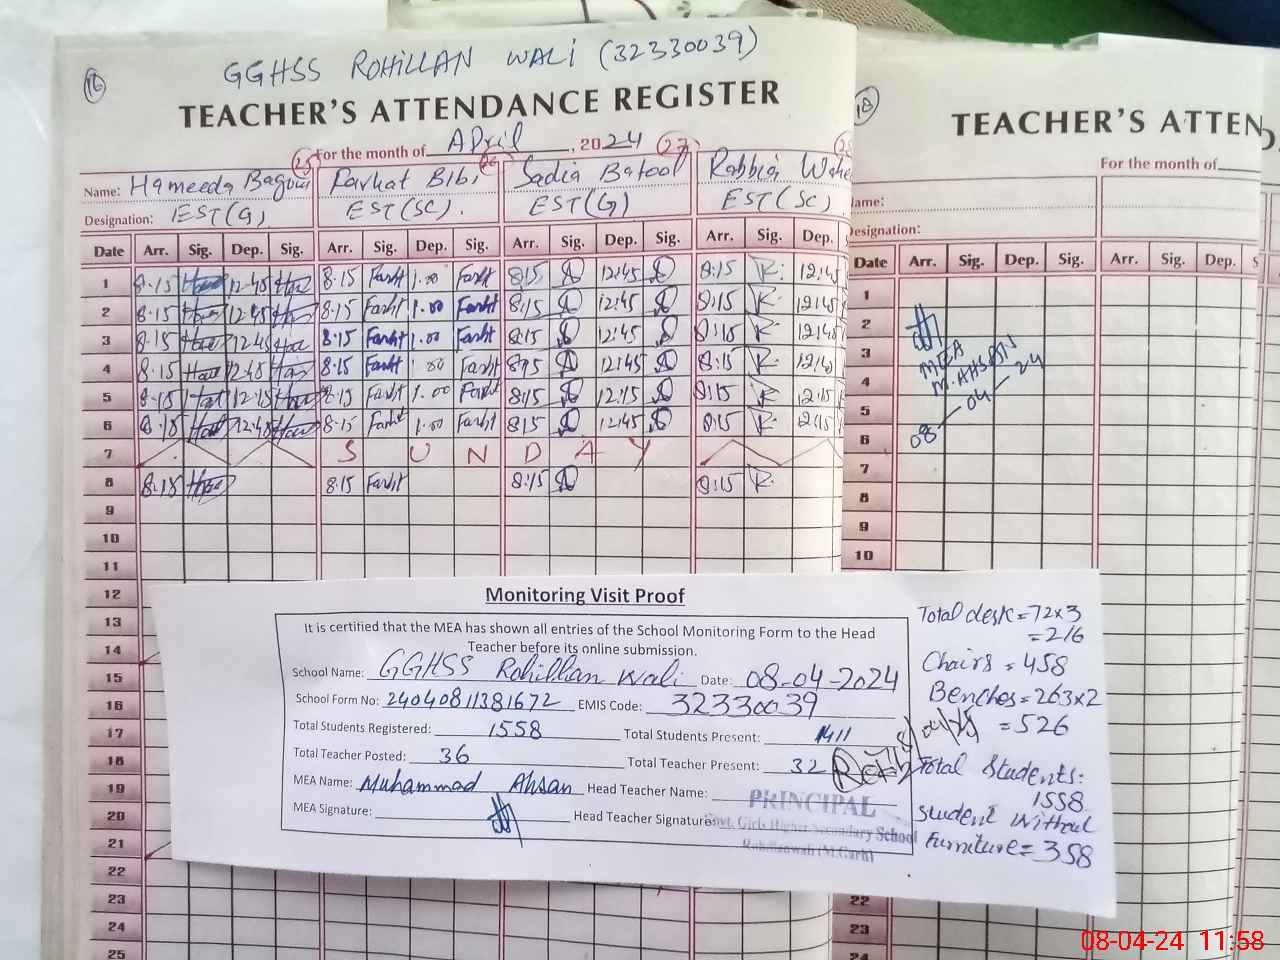 16
GGHSS ROHILLAN WALI (32330039)
TEACHER'S ATTENDANCE REGISTER
For the month of April, 2024
25 26 27
Name: Hameeda Farhat Bibi Sadia Batool Rabbia
Designation: EST(G) EST(SC). EST(G) EST(SC)
Date Arr. Sig. Dep. Sig. Arr. Sig. Dep. Sig. Arr. Sig. Dep. Sig. Arr. Sig. Dep.
1 8.15 12.45 8.15 Farht 1.00 Farht 8:15 12:45 8:15 R. 12:45
2 8.15 12.45 8.15 Farht 1.00 Farht 8:15 12:45 8:15 R. 12:45
3 8.15 12.45 8.15 Farht 1.00 Farht 8:15 12:45 8:15 R. 12:45
4 8.15 12.45 8.15 Farht 1.00 Farht 8:15 12:45 8:15 R. 12:45
5 8.15 12.15 8.15 Farht 1.00 Farht 8:15 12:15 8:15 R. 12:15
6 8.15 12.45 8.15 Farht 1.00 Farht 8:15 12:45 8:15 R. 12:15
7 S U N D A Y
8 8.15 8.15 Farht 8:15 8:15 R.
9
10
11
12
13
14
15
16
17
18
19
20
21
22
23
24
25
18
TEACHER'S ATTEN
For the month of
ame:
esignation:
Date Arr. Sig. Dep. Sig. Arr. Sig. Dep. S
1
2
3
4
5
6
7
8
9
10
22
23
24
MEA
M. AHSAN
08-04-24
Monitoring Visit Proof
It is certified that the MEA has shown all entries of the School Monitoring Form to the Head
Teacher before its online submission.
School Name: GGHSS Rohillan Wali Date: 08-04-2024
School Form No: 24040811381672 EMIS Code: 32330039
Total Students Registered: 1558 Total Students Present: 1411
Total Teacher Posted: 36 Total Teacher Present: 32
MEA Name: Muhammad Ahsan Head Teacher Name:
MEA Signature: Head Teacher Signature:
PRINCIPAL
Govt. Girls Higher Secondary School
Rohillanwali (M.Garh)
Total desk = 72x3
= 216
Chairs = 458
Benches = 263x2
= 526
Total Students:
1558
Student Without
Furniture = 358
08-04-24 11:58